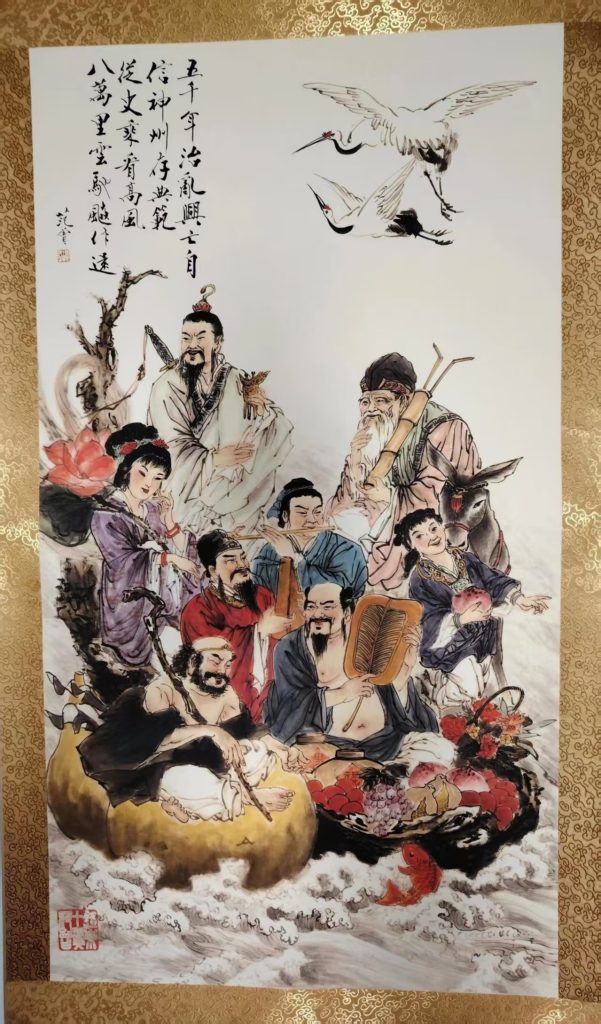 五千年治亂興亡自
信神州存典範
從史乘看高風
八萬里雲馳飈作遠
范曾